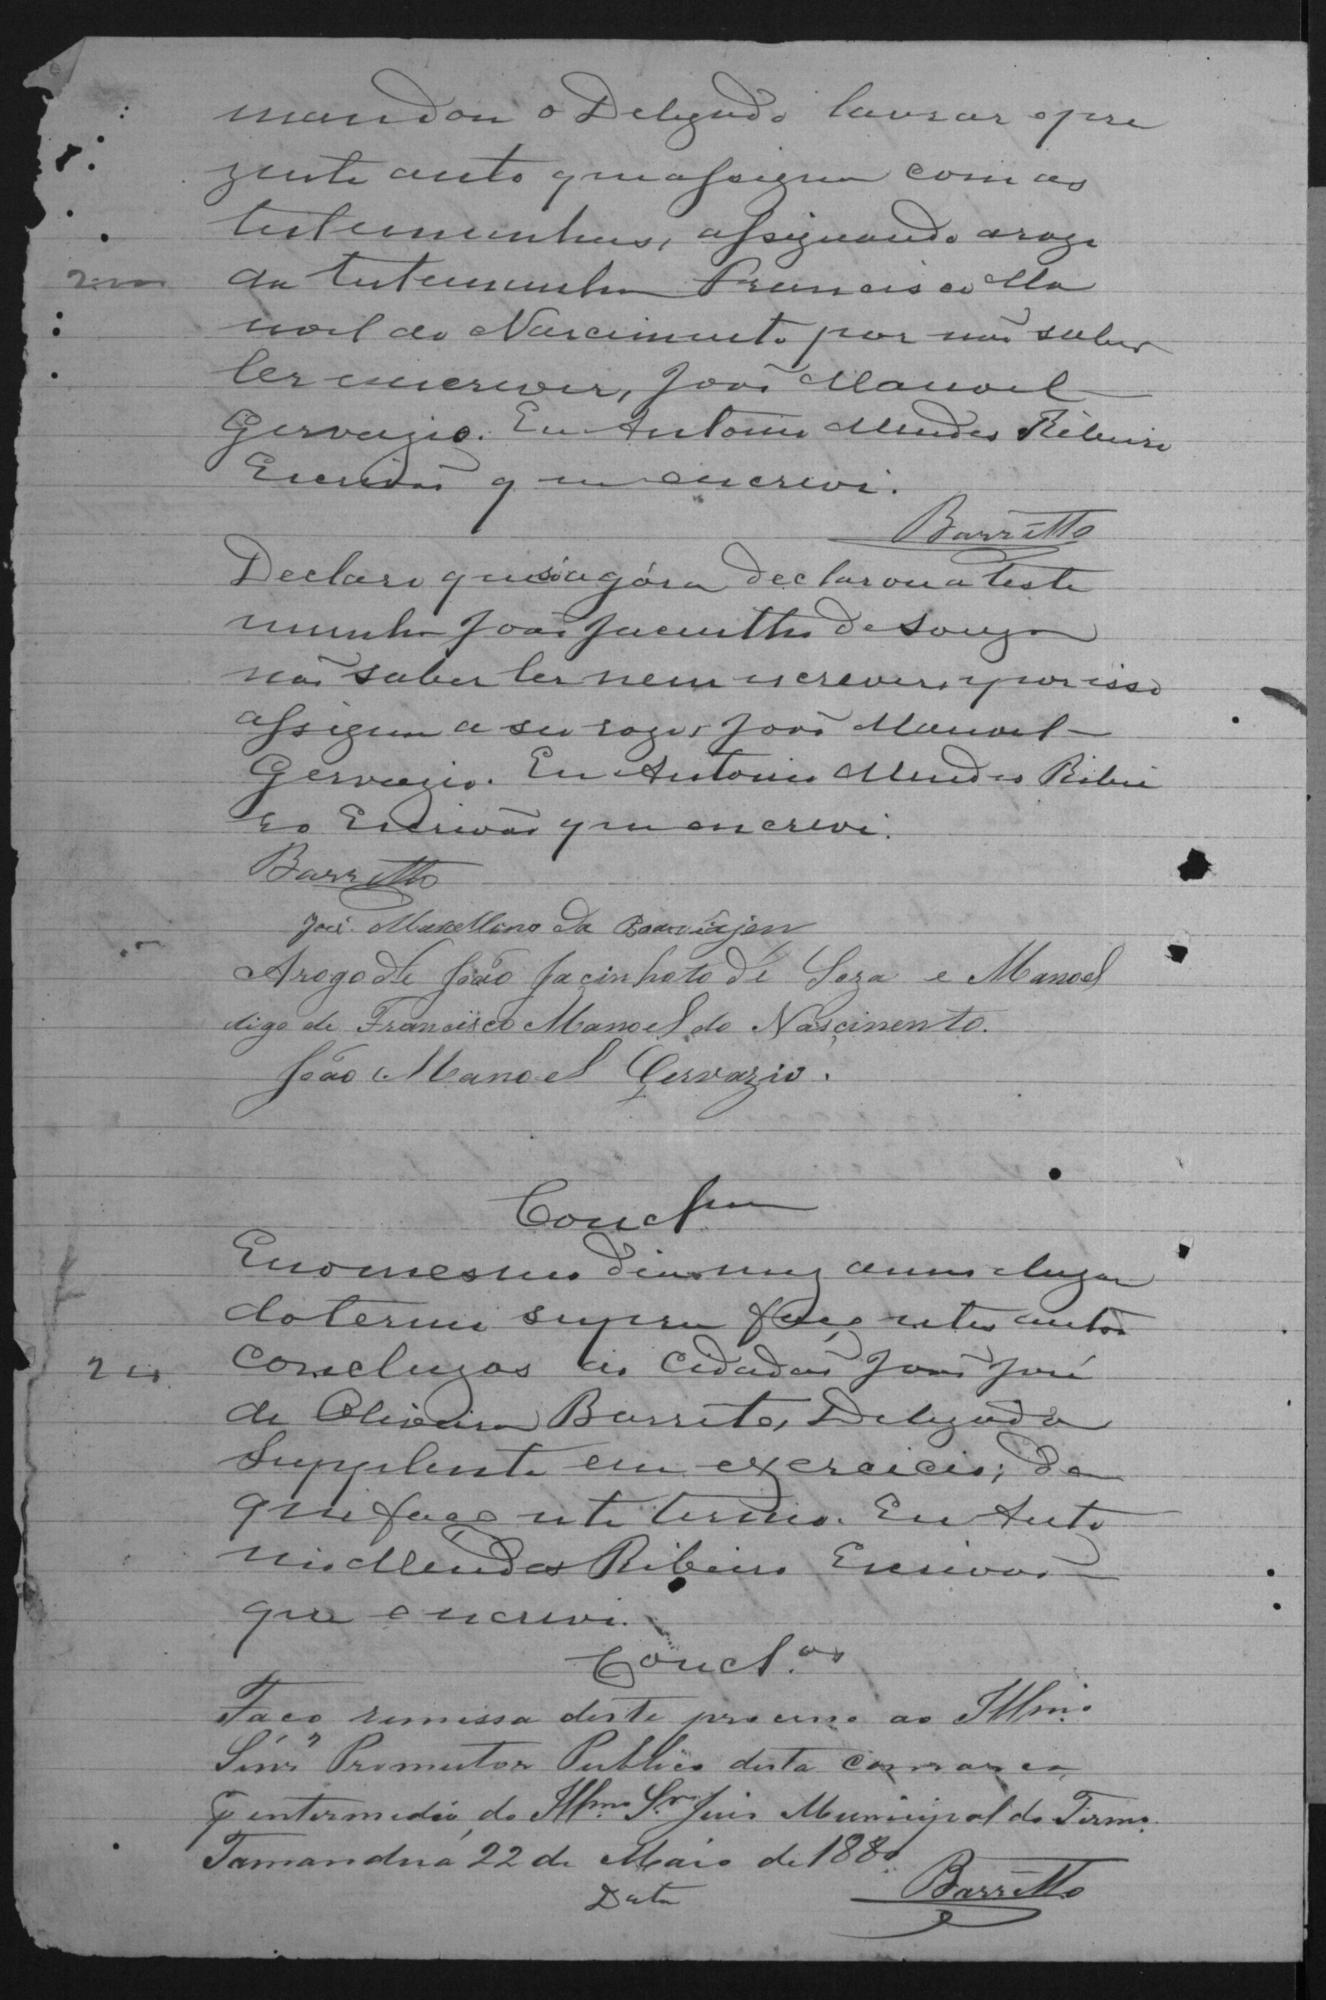 mandou o Delegado lavrar o pre
zente auto que assigna com as
testemunhas, assignando a rogo
da testemunha Francisco Ma
noel do Nascimento por não saber
ler e escrever, João Manoel
Gervazio. Eu Antonio Mendes Ribeiro
Escrivão que escrevi.
Barretto
Declaro que só agóra declarou a teste
munha João Jacintho de Souza
não saber ler nem escrever, e por isso
assigna a seu rogo, João Manoel
Gervazio. Eu Antonio Mendes Ribei
ro Escrivão que escrevi.
Barretto
José Marcellino da Boaviajen
Arogo de João Jacinhoto de Soza e Manoel
digo de Francisco Manoel do Nascinento.
João Manoel Gervazio.
Concl.am
E no mesmo dia mez anno e lugar
do termo supra faço estes autos
concluzos ao Cidadão João José
de Oliveira Barreto, Delegado
Supplente em exercicio; do
que faço este termo. Eu Anto
nio Mendes Ribeiro Escrivão
que escrevi.
Concl.os
Faço remissa deste processo ao Illmo.
Sínr Promutor Publico desta comarca,
p intermedio do Illmo. Sr. Juis Municipal do Termo.
Tamanduá 22 de Maio de 1880
Barretto
Data